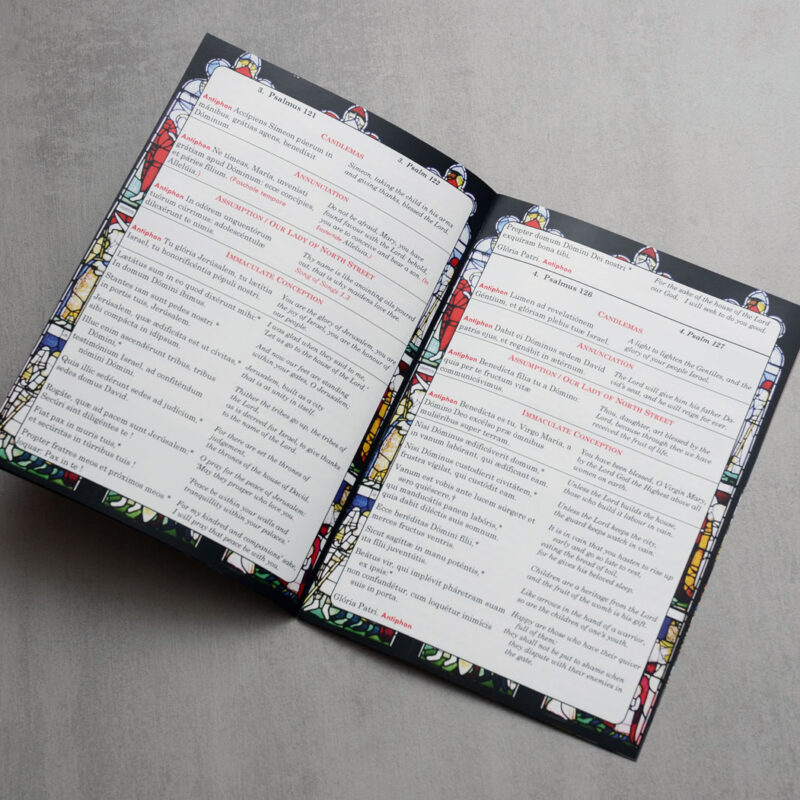 3. Psalmus 121
3. Psalm 122
CANDLEMAS
Antiphon Accípiens Símeon púerum in
mánibus, grátias agens, benedíxit
Dóminum.
Simeon, taking the child in his arms
and giving thanks, blessed the Lord.
ANNUNCIATION
Antiphon Ne tímeas, María, invenísti
grátiam apud Dóminum: ecce concípies,
et páries fílium. (Paschale tempore
Allelúia.)
Do not be afraid, Mary, you have
found favour with the Lord; behold,
you are to conceive and bear a son.
Alleluia.)
ASSUMPTION / OUR LADY OF NORTH STREET
Antiphon In odórem unguentórum
tuórum cúrrimus: adolescéntulæ
dilexérunt te nimis.
Thy name is like anointing oils poured
out, that is why maidens love thee.
Song of Songs 1.3
IMMACULATE CONCEPTION
Antiphon Tu glória Jerúsalem, tu lætítia
Israel, tu honorificéntia pópuli nostri.
You are the glory of Jerusalem, you are
the joy of Israel, you are the honour of
our people.
Lætátus sum in eo quod dixérunt mihi:*
In domum Dómini íbimus.
I was glad when they said to me,
'Let us go to the house of the Lord.'
Stantes iam sunt pedes nostri *
in portis tuis, Jerúsalem.
And now our feet are standing
within your gates, O Jerusalem,
Jerúsalem, quæ ædificáta est ut cívitas,*
sibi compácta in idípsum.
Jerusalem, built as a city
that is at unity in itself.
Illuc enim ascendérunt tribus, tribus
Dómini, *
testimónium Israel, ad confiténdum
nómini Dómini.
Thither the tribes go up, the tribes of
the Lord,
as is decreed for Israel, to give thanks
to the name of the Lord.
Quia illic sedérunt sedes ad judícium, *
sedes domus David.
For there are set the thrones of
judgement,
the thrones of the house of David.
Rogáte, quæ ad pacem sunt Jerúsalem: *
Secúri sint diligéntes te !
O pray for the peace of Jerusalem:
'May they prosper who love you.
Fiat pax in muris tuis, *
et secúritas in túrribus tuis!
'Peace be within your walls and
tranquillity within your palaces.'
Propter fratres meos et próximos meos *
loquar: Pax in te !
For my kindred and companions' sake,
I will pray that peace be with you.
Propter domum Dómini Dei nostri *
exquíram bona tibi.
Glória Patri. Antiphon
For the sake of the house of the Lord
our God, I will seek to do you good.
4. Psalmus 126
4. Psalm 127
CANDLEMAS
Antiphon Lumen ad revelatiónem
Géntium, et glóriam plebis tuæ Israel.
A light to lighten the Gentiles, and the
glory of your people Israel.
ANNUNCIATION
Antiphon Dabit ei Dóminus sedem David
patris ejus, et regnábit in ætérnum.
The Lord will give him his father Da-
vid's seat, and he will reign for ever.
ASSUMPTION / OUR LADY OF NORTH STREET
Antiphon Benedícta fília tu a Dómino:
quia per te fructum vitæ
communicávimus.
Thou, daughter, art blessed by the
Lord, because through thee we have
received the fruit of life.
IMMACULATE CONCEPTION
Antiphon Benedícta es tu, Virgo María, a
Dómino Deo excélso præ ómnibus
muliéribus super terram.
You have been blessed, O Virgin Mary,
by the Lord God the Highest above all
Nisi Dóminus ædificáverit domum, *
in vanum labórant, qui ædíficant eam.
Unless the Lord builds the house,
those who build it labour in vain.
Nisi Dóminus custodíerit civitátem, *
frustra vígilat, qui custódit eam.
Unless the Lord keeps the city,
the guard keeps watch in vain.
Vanum est vobis ante lucem súrgere et
sero quiéscere, †
qui manducátis panem labóris, *
quia dabit diléctis suis somnum.
It is in vain that you hasten to rise up
early and go so late to rest,
eating the bread of toil,
for he gives his beloved sleep.
Ecce heréditas Dómini fílii, *
merces fructus ventris.
Children are a heritage from the Lord
and the fruit of the womb is his gift.
Sicut sagíttæ in manu poténtis, *
ita fílii juventútis.
Like arrows in the hand of a warrior,
so are the children of one's youth.
Beátus vir, qui implévit pháretram suam
ex ipsis: *
non confundétur, cum loquétur inimícis
suis in porta.
Happy are those who have their quiver
full of them:
they shall not be put to shame when
they dispute with their enemies in
the gate.
Glória Patri. Antiphon